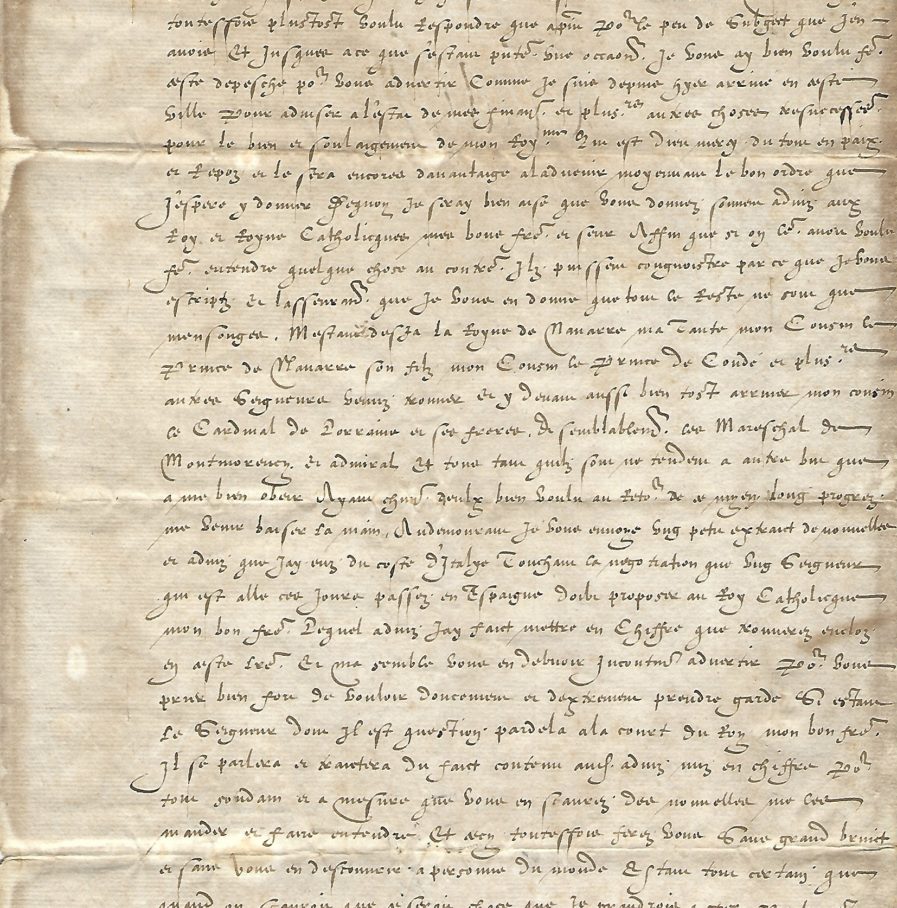 touteffoie plustost voulu Respondre que apres por le peu de Subgect que Jen
avoie Et Jusques a ce que sestant pnte vne occaon Je vous ay bien voulu fe.
ceste depesche por vous advertir Comme Je suis depuis hyer arrive en ceste
ville pour adviser a lestat de mes finan. et plusrs autres choses necesses
pour le bien et soulaigement de mon Roy.me Qui est dieu mercy du tout en paix
et Repoz et le sera encores davantaige aladvenir moyennant le bon ordre que
Jespere y donner Je seray bien aise que vous donnez souvent adviz aux
Roy et Royne Catholicques mes bons fre. et seur Affin que si on le. avoit voulu
fe. entendre quelque chose au contre. Ilz puissent congnoistre par ce que Je vous
escriptz Et lasseuran. que Je vous en donne que tout le Reste ne sont que
mensonges. Mestant desia la Royne de Navarre ma Tante mon Cousin le
Prince de Navarre son filz mon Cousin le Prince de Condé et plus.rs
autres Seigneurs venuz trouver Et y devant aussi bien tost arriver mon cousin
le Cardinal de Lorraine et ses freres. Et semblablemt. les Mareschal de
Montmorency. Et admiral Et tous tant quilz sont ne tendent a autre but que
a me bien obeir Ayant chun. deulx bien voulu au Reto.r de ce myen long progrez
me venir baiser la main. Audemourant Je vous envoye vng petit extraict de nouvelles
et adviz que Jay euz du coste d'Italye Touchant la negotiation que vng Seigneur
qui est alle ces Jours passez en Espaigne doibt proposer au Roy Catholicque
mon bon fre. Lequel adviz Jay faict mettre en Chiffre que trouverez encloz
en ceste lre. Et ma semble vous en debvoir Incontint advertir Por. vous
prier bien fort de vouloir doucement et dextrement prendre garde Si estant
le Seigneur dont Il est question pardela a la court du Roy mon bon fre.
Il se parlera et traictera du faict contenu aud. adviz mis en chiffre Por
tout soudain et a mesure que vous en scaurez des nouvelles me les
mander et faire entendre. Et cecy touteffois ferez vous Sans grand bruict
et sans vous en descouvrir a personne du monde Estant tout certain que
quand on scauroit que ce seroit chose que Je